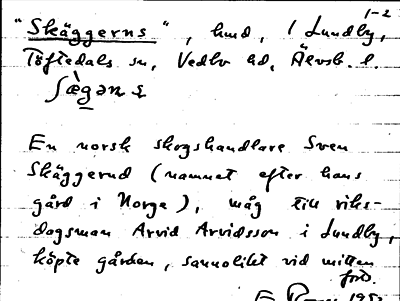 1-2
"Skäggerns", hmd, i Lundby,
Töftedals sn, Vedbo hd, Älvsb. l.
En norsk skogshandlare Sven
Skäggerud (namnet efter hans
gård i Norge), måg till riks-
dagsman Arvid Arvidsson i Lundby,
köpte gården, sannolikt vid mitten